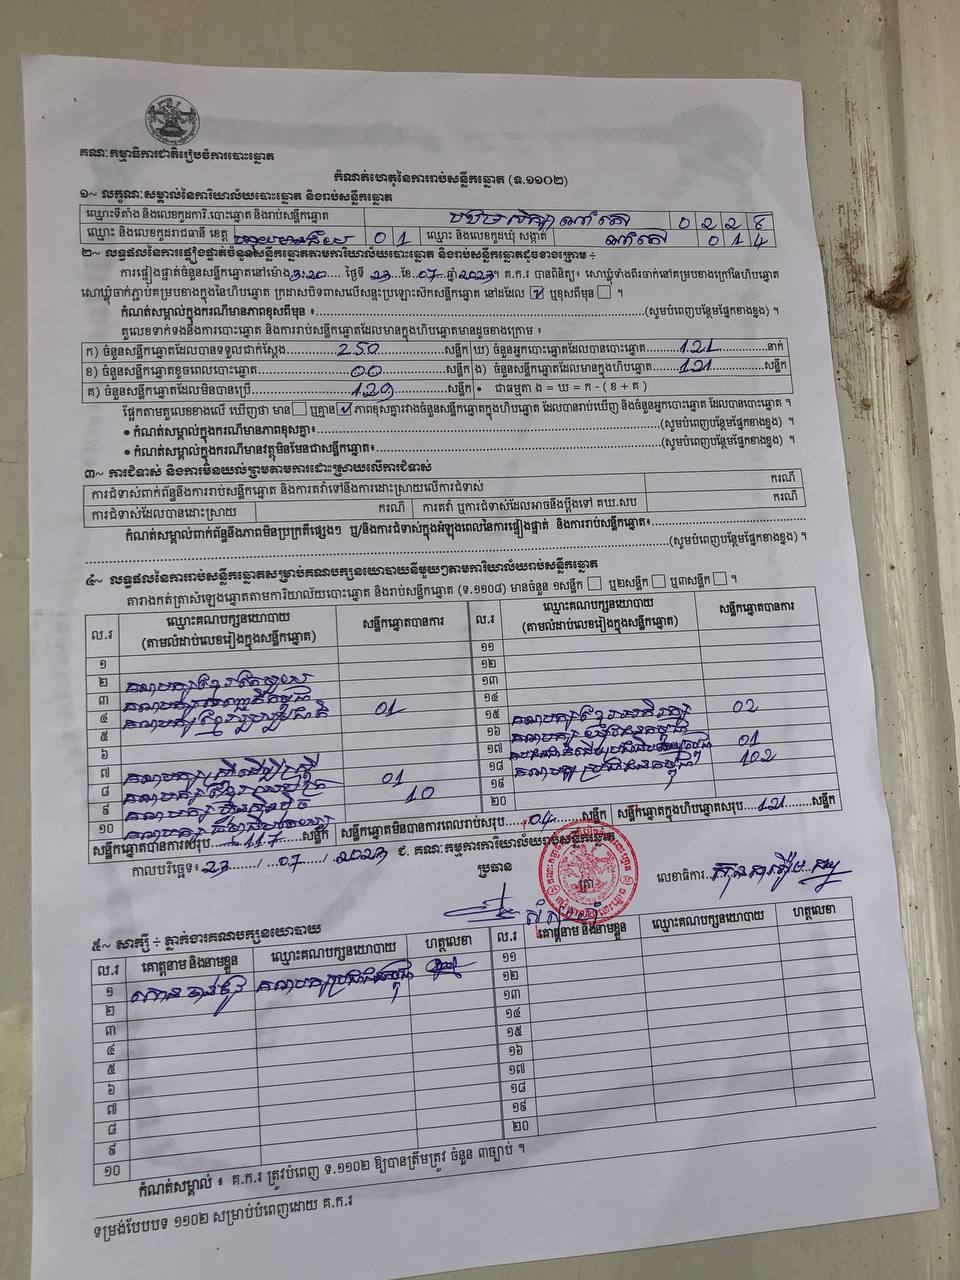 គណៈកម្មាធិការជាតិរៀបចំការបោះឆ្នោត
កំណត់ហេតុនៃការរាប់សន្លឹកឆ្នោត (ទ.១១០២)
១~ លក្ខណៈសម្គាល់នៃការិយាល័យបោះឆ្នោត និងរាប់សន្លឹកឆ្នោត
ឈ្មោះទីតាំង និងលេខកូដការិ.បោះឆ្នោត និងរាប់សន្លឹកឆ្នោត 0 2 2 8
ឈ្មោះ និងលេខកូដរាជធានី ខេត្ត បន្ទាយមានជ័យ 0 1 ឈ្មោះ និងលេខកូដឃុំ សង្កាត់ 0 1 4
២~ លទ្ធផលនៃការផ្ទៀងផ្ទាត់ចំនួនសន្លឹកឆ្នោតតាមការិយាល័យបោះឆ្នោត និងរាប់សន្លឹកឆ្នោតដូចខាងក្រោម ÷
ការផ្ទៀងផ្ទាត់ចំនួនសន្លឹកឆ្នោតនៅម៉ោង 3:20 ថ្ងៃទី 23 ខែ 07 ឆ្នាំ 2023។ គ.ក.រ បានពិនិត្យ៖ សោឃ្លុំទាំងពីរចាក់នៅគម្របខាងក្រៅនៃហិបឆ្នោត
សោឃ្លុំចាក់ភ្ជាប់គម្របខាងក្នុងនៃហិបឆ្នោត ក្រដាសបិទពាសលើសន្ទះប្រឡោះស៊កសន្លឹកឆ្នោត នៅដដែល ☑ ឬខុសពីមុន ☐ ។
កំណត់សម្គាល់ក្នុងករណីមានភាពខុសពីមុន ៖ (សូមបំពេញបន្ថែមផ្នែកខាងខ្នង) ។
តួលេខទាក់ទងនឹងការបោះឆ្នោត និងការរាប់សន្លឹកឆ្នោតដែលមានក្នុងហិបឆ្នោតមានដូចខាងក្រោម ៖
ក) ចំនួនសន្លឹកឆ្នោតដែលបានទទួលជាក់ស្តែង 250 សន្លឹក ឃ) ចំនួនអ្នកបោះឆ្នោតដែលបានបោះឆ្នោត 121 នាក់
ខ) ចំនួនសន្លឹកឆ្នោតខូចពេលបោះឆ្នោត 00 សន្លឹក ង) ចំនួនសន្លឹកឆ្នោតដែលមានក្នុងហិបឆ្នោត 121 សន្លឹក
គ) ចំនួនសន្លឹកឆ្នោតដែលមិនបានប្រើ 129 សន្លឹក • ជាធម្មតា ង = ឃ = ក - ( ខ + គ )
ផ្អែកតាមតួលេខខាងលើ ឃើញថា មាន ☐ ឬគ្មាន ☑ ភាពខុសគ្នារវាងចំនួនសន្លឹកឆ្នោតក្នុងហិបឆ្នោត ដែលបានរាប់ឃើញ និងចំនួនអ្នកបោះឆ្នោត ដែលបានបោះឆ្នោត ។
• កំណត់សម្គាល់ក្នុងករណីមានភាពខុសគ្នា៖ (សូមបំពេញបន្ថែមផ្នែកខាងខ្នង) ។
• កំណត់សម្គាល់ក្នុងករណីមានវត្ថុមិនមែនជាសន្លឹកឆ្នោត៖ (សូមបំពេញបន្ថែមផ្នែកខាងខ្នង) ។
៣~ ការជំទាស់ និងការមិនយល់ព្រមតាមការដោះស្រាយលើការជំទាស់
ការជំទាស់ពាក់ព័ន្ធនឹងការរាប់សន្លឹកឆ្នោត និងការតវ៉ាទៅនឹងការដោះស្រាយលើការជំទាស់ ករណី
ការជំទាស់ដែលបានដោះស្រាយ ករណី ការតវ៉ា ឬការជំទាស់ដែលអាចនឹងប្តឹងទៅ គឃ.សប ករណី
កំណត់សម្គាល់ពាក់ព័ន្ធនឹងភាពមិនប្រក្រតីផ្សេងៗ ឬ/និងការជំទាស់ក្នុងអំឡុងពេលនៃការផ្ទៀងផ្ទាត់ និងការរាប់សន្លឹកឆ្នោត៖
(សូមបំពេញបន្ថែមផ្នែកខាងខ្នង) ។
៤~ លទ្ធផលនៃការរាប់សន្លឹកឆ្នោតសម្រាប់គណបក្សនយោបាយនីមួយៗតាមការិយាល័យរាប់សន្លឹកឆ្នោត
តារាងកត់ត្រាសំឡេងឆ្នោតតាមការិយាល័យបោះឆ្នោត និងរាប់សន្លឹកឆ្នោត (ទ.១១០៨) មានចំនួន ១សន្លឹក ☐ ឬ២សន្លឹក ☐ ឬ៣សន្លឹក ☐ ។
ល.រ ឈ្មោះគណបក្សនយោបាយ (តាមលំដាប់លេខរៀងក្នុងសន្លឹកឆ្នោត) សន្លឹកឆ្នោតបានការ ល.រ ឈ្មោះគណបក្សនយោបាយ (តាមលំដាប់លេខរៀងក្នុងសន្លឹកឆ្នោត) សន្លឹកឆ្នោតបានការ
១ ១១
២ គណបក្ស ១២
៣ គណបក្ស ១៣
៤ គណបក្ស 01 ១៤
៥ ១៥ គណបក្ស 02
៦ ១៦ គណបក្ស
៧ គណបក្ស ១៧ 01
៨ គណបក្ស 01 ១៨ គណបក្ស ប្រជាជនកម្ពុជា 102
៩ គណបក្ស 10 ១៩
១០ គណបក្ស ២០
សន្លឹកឆ្នោតបានការសរុប 117 សន្លឹក សន្លឹកឆ្នោតមិនបានការពេលរាប់សរុប 04 សន្លឹក សន្លឹកឆ្នោតក្នុងហិបឆ្នោតសរុប 121 សន្លឹក
កាលបរិច្ឆេទ៖ 23 / 07 / 2023 ជ. គណៈកម្មការការិយាល័យរាប់សន្លឹកឆ្នោត
ប្រធាន លេខាធិការ
៥~ សាក្សី ÷ ភ្នាក់ងារគណបក្សនយោបាយ
ល.រ គោត្តនាម និងនាមខ្លួន ឈ្មោះគណបក្សនយោបាយ ហត្ថលេខា ល.រ គោត្តនាម និងនាមខ្លួន ឈ្មោះគណបក្សនយោបាយ ហត្ថលេខា
១ គណបក្សប្រជាជនកម្ពុជា ១១
២ ១២
៣ ១៣
៤ ១៤
៥ ១៥
៦ ១៦
៧ ១៧
៨ ១៨
៩ ១៩
១០ ២០
កំណត់សម្គាល់ ៖ គ.ក.រ ត្រូវបំពេញ ទ.១១០២ ឱ្យបានត្រឹមត្រូវ ចំនួន ៣ច្បាប់ ។
ទម្រង់បែបបទ ១១០២ សម្រាប់បំពេញដោយ គ.ក.រ